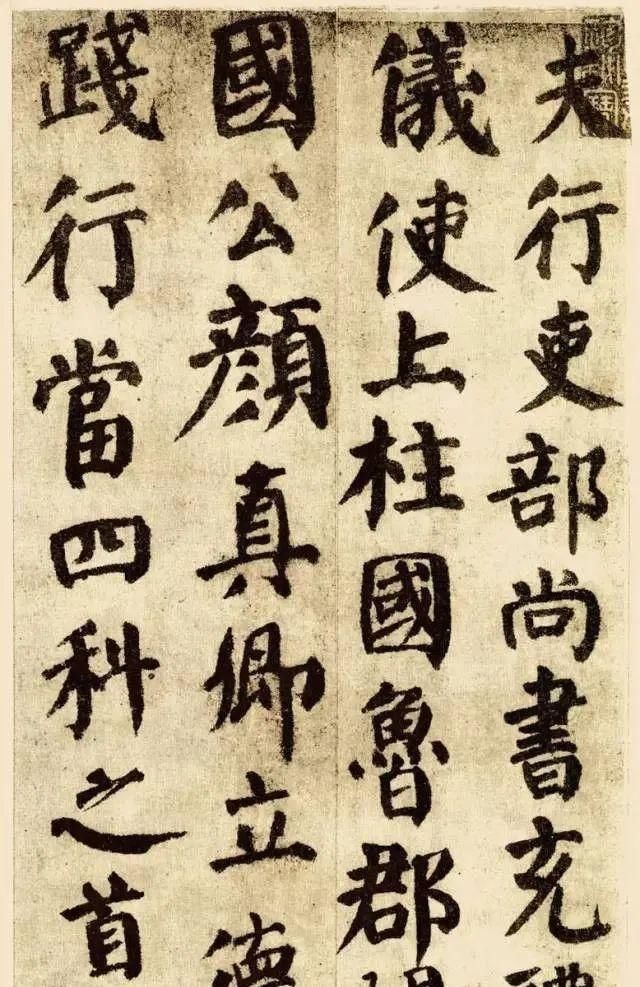 夫行吏部尚書充
儀使上柱國魯郡
國公顏真卿立德
踐行當四科之首